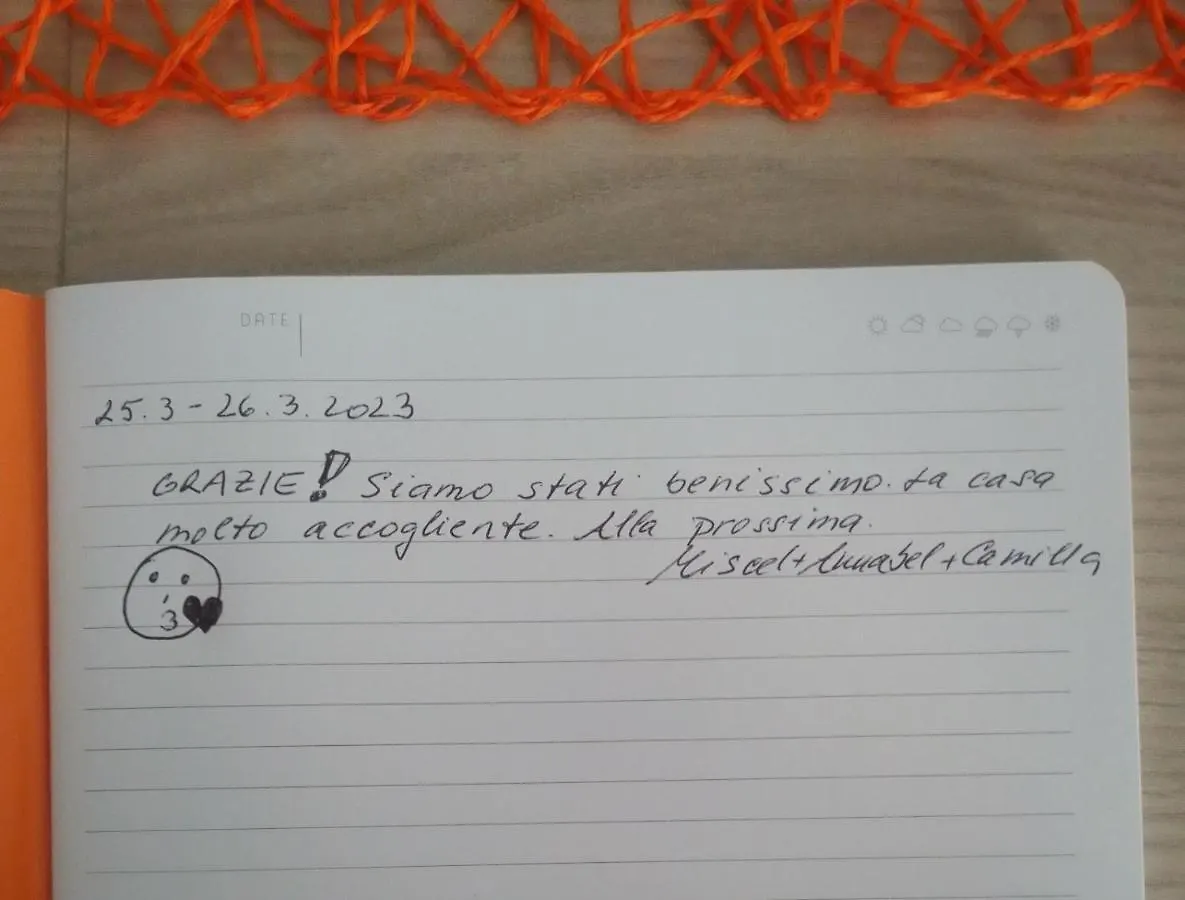 DATE
25.3 - 26.3.2023
GRAZIE! Siamo stati benissimo. La casa
molto accogliente. Alla prossima.
Miscel+Annabel+Camilla